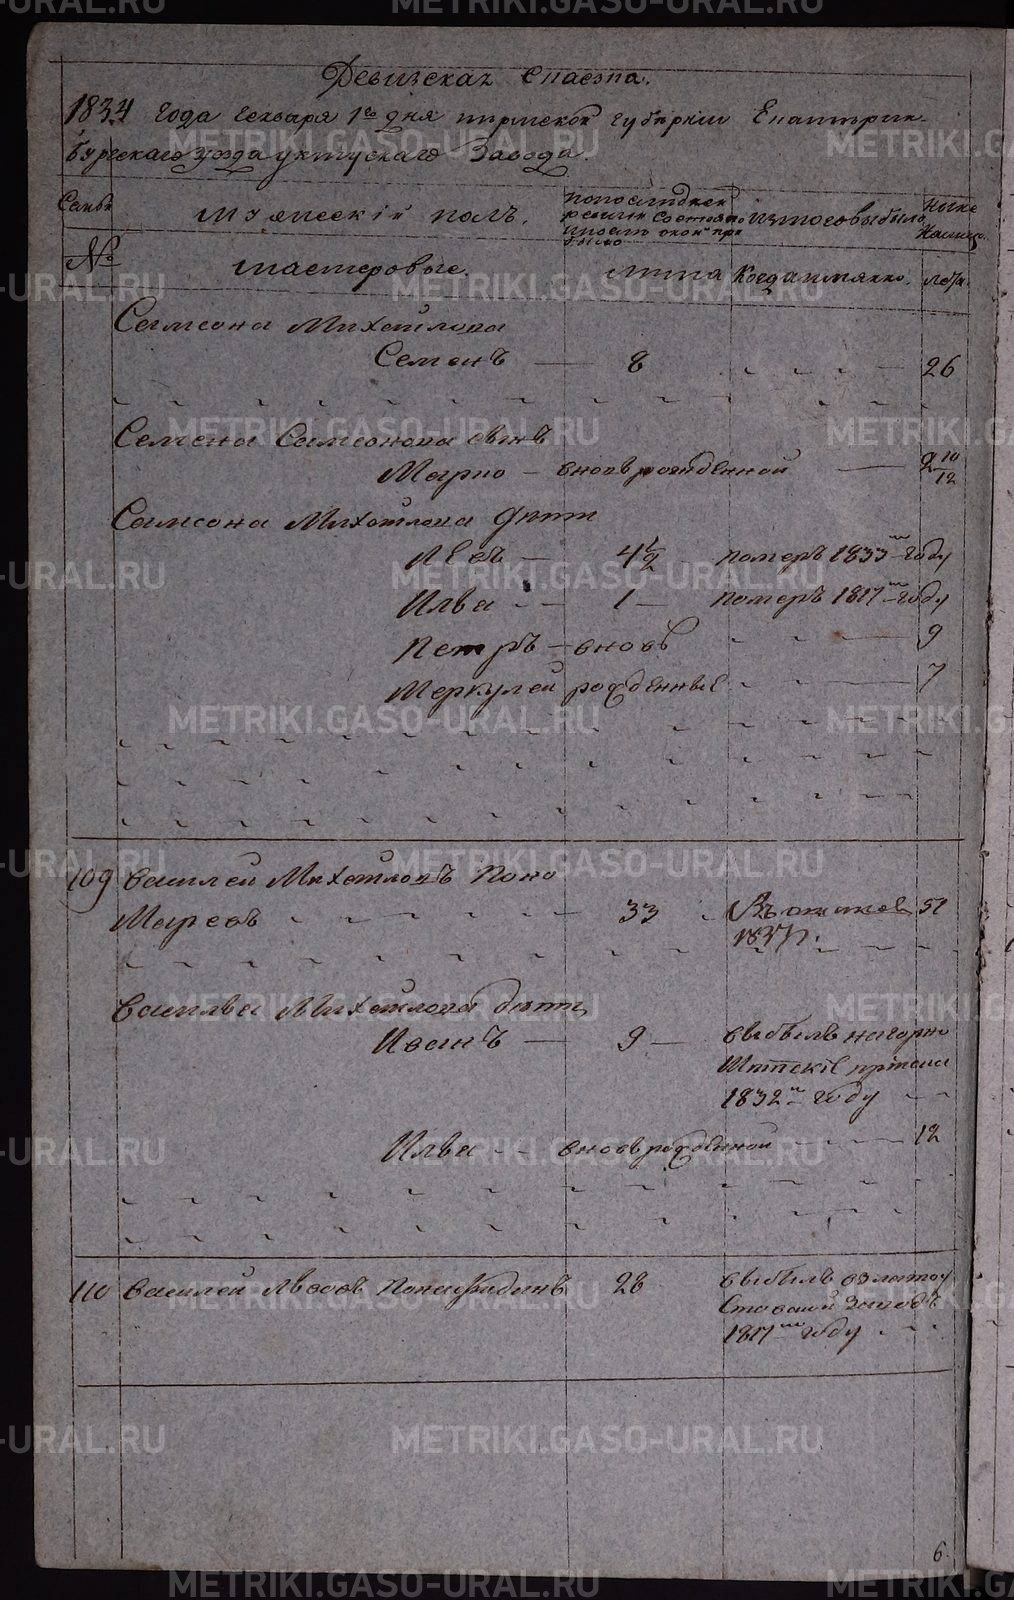 METRIKI.GASO-URAL.RU
Ревизская Сказка.
1834 года генваря 1го дня пермской губернии Екатерин-
бургскаго уезда уктускаго Завода.
Семьи
Мужескій полъ.
По последней
ревизии состояло
и после оной при
было
Изтого выбыло
Ныне
На лицо
№
мастеровые.
лета
Когда имянно.
лета
Самсона Михайлова
Семенъ — 8 26
Семена Самсонова сынъ
Марко — вновь рожденной — 2 10/12
Самсона Михайлова дети
Левъ — 4 1/2 померъ 1833го году
Илья — 1 — померъ 1817го году
Петръ — вновь 9
Меркулей рожденные 7
109 Василей Михайловъ Поно
Маревъ 33 51
1837г.
Василья Михайлова дети
Иванъ — 9 — выбылъ на горно
Питскіе пріиски
1832м году
Илья — вновь рожденной 12
110 Василей Львовъ 28 выбылъ в злато
Устовской заводъ
1817м году
6